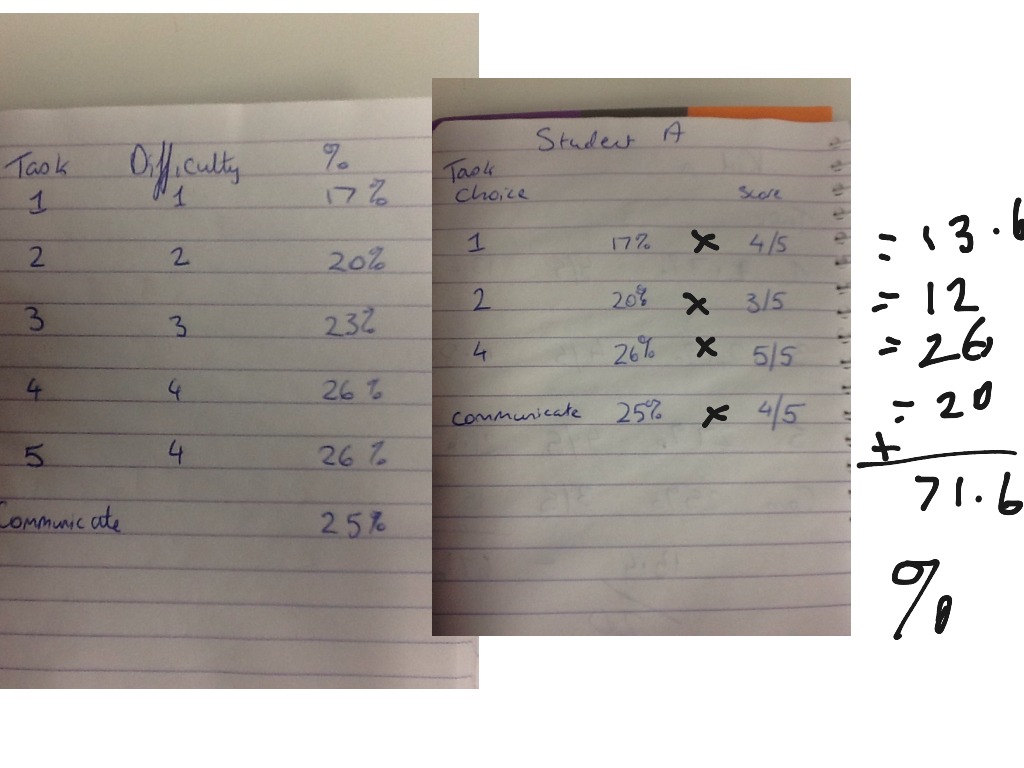 Task Difficulty %
1 1 17%
2 2 20%
3 3 23%
4 4 26%
5 4 26%
Communicate 25%
Student A
Task
choice Score
1 17% × 4/5 = 13.6
2 20% × 3/5 = 12
4 26% × 5/5 = 26
communicate 25% × 4/5 = 20
+
71.6
%